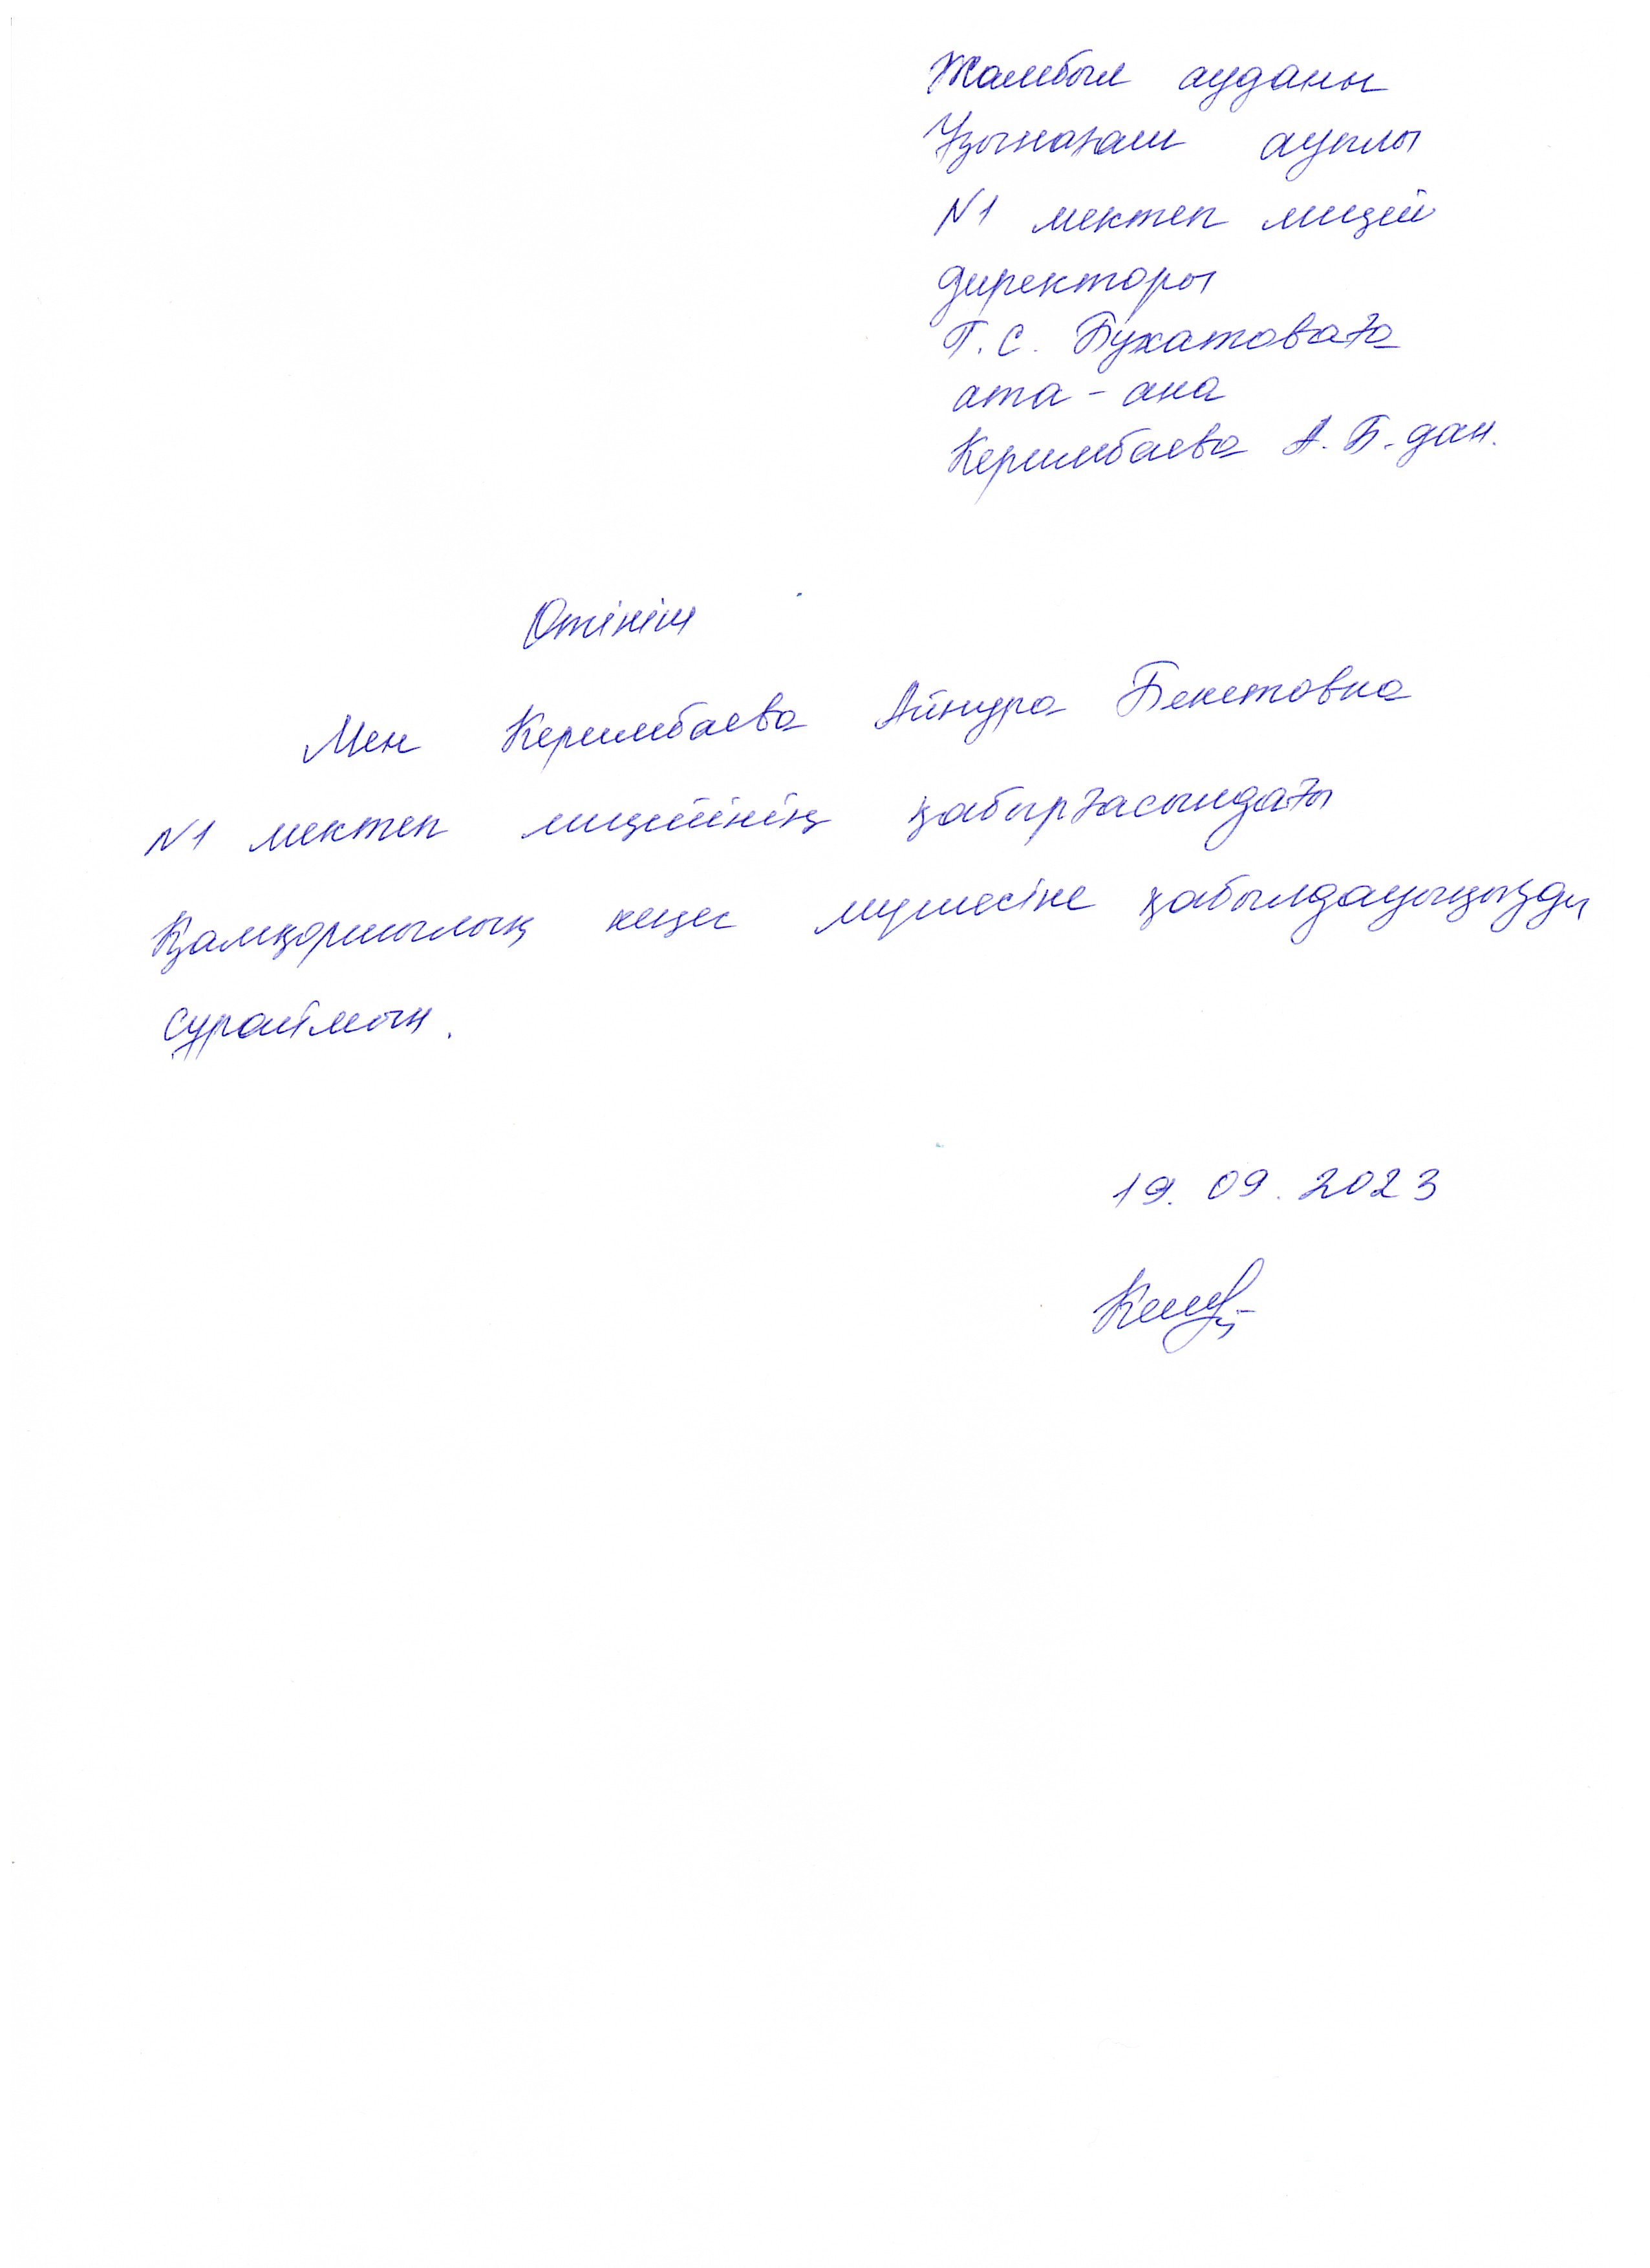 Жамбыл ауданы
Ұзынағаш ауылы
N1 мектеп лицей
директоры
Г. С. Бухатоваға
ата - ана
Керимбаева А. Б. дан.
Өтініш
Мен Керимбаева Айнура Бекетовна
N1 мектеп лицейінің қабырғасындағы
Қамқоршылық кеңес мүшесіне қабылдауыңызды
сұраймын.
19. 09. 2023